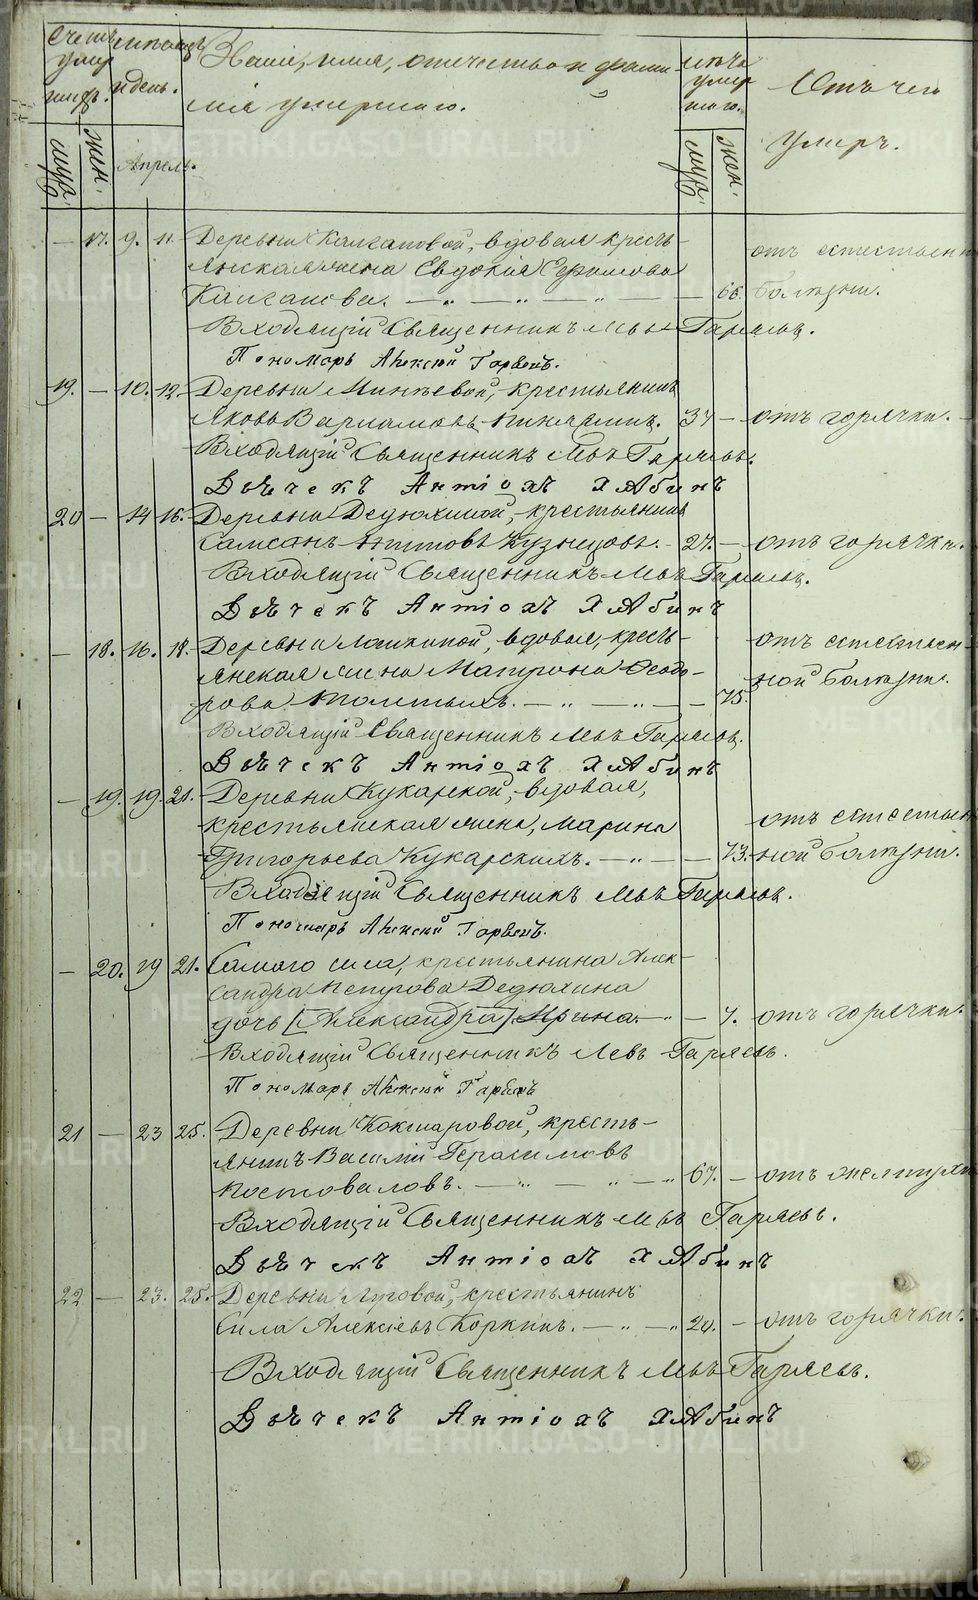 Счетъ умершихъ. Мѣсяцъ и день. Званіе, имя, отчество и фами- Лѣта умершаго. Отъ чего
лія умершаго. умеръ.
Муж. Жен. Апрель. Муж. Жен.
— 17. 9. 11. Деревни Калгановой, вдовая кресть- отъ естествен
янская жена Евдокія
Калганова. — „ — „ — „ — — 66. болѣзни.
Входящій Священникъ Левъ Гаряевъ.
Пономарь Алексѣй
19. — 10. 12. Деревни Минѣевой, крестьянинъ
Яковъ Варламовъ 34 — отъ горячки. —
Входящій Священникъ Левъ Гаряевъ.
Дьячекъ Антіохъ Хлябинъ
20 — 14 16. Деревни Дедюхиной, крестьянинъ
Самсонъ Титовъ Кузнецовъ. — 27. — отъ горячки.
Входящій Священникъ Левъ Гаряевъ.
Дьячекъ Антіохъ Хлябинъ
— 18. 16. 18. Деревни вдовая, кресть- отъ естествен-
янская жена Матрона Ѳеодо- ной болѣзни.
рова Толстыхъ. — „ — „ — — 75.
Входящій Священникъ Левъ Гаряевъ.
Дьячекъ Антіохъ Хлябинъ
— 19. 19 21. Деревни Кукарской, вдовая, отъ естествен
крестьянская жена, Марина
Григорьева Кукарскихъ. — „ — — 73. ной болѣзни.
Входящій Священникъ Левъ Гаряевъ.
Пономарь Алексѣй
— 20. 19 21. Самаго села, крестьянина Алек-
сандра Петрова Дедюхина
дочь [Александра] Ирина. — „ — 7. отъ горячки.
Входящій Священникъ Левъ Гаряевъ.
Пономарь Алексѣй
21 — 23 25. Деревни Кокшаровой, кресть-
янинъ Василій Герасимовъ
Костоваловъ. — „ — „ — „ 67. — отъ желтухи
Входящій Священникъ Левъ Гаряевъ.
Дьячекъ Антіохъ Хлябинъ
22 — 23. 25. Деревни Луговой, крестьянинъ
Сила Алексіевъ Коркинъ. — „ — „ 20. — отъ горячки.
Входящій Священникъ Левъ Гаряевъ.
Дьячекъ Антіохъ Хлябинъ
METRIKI.GASO-URAL.RU